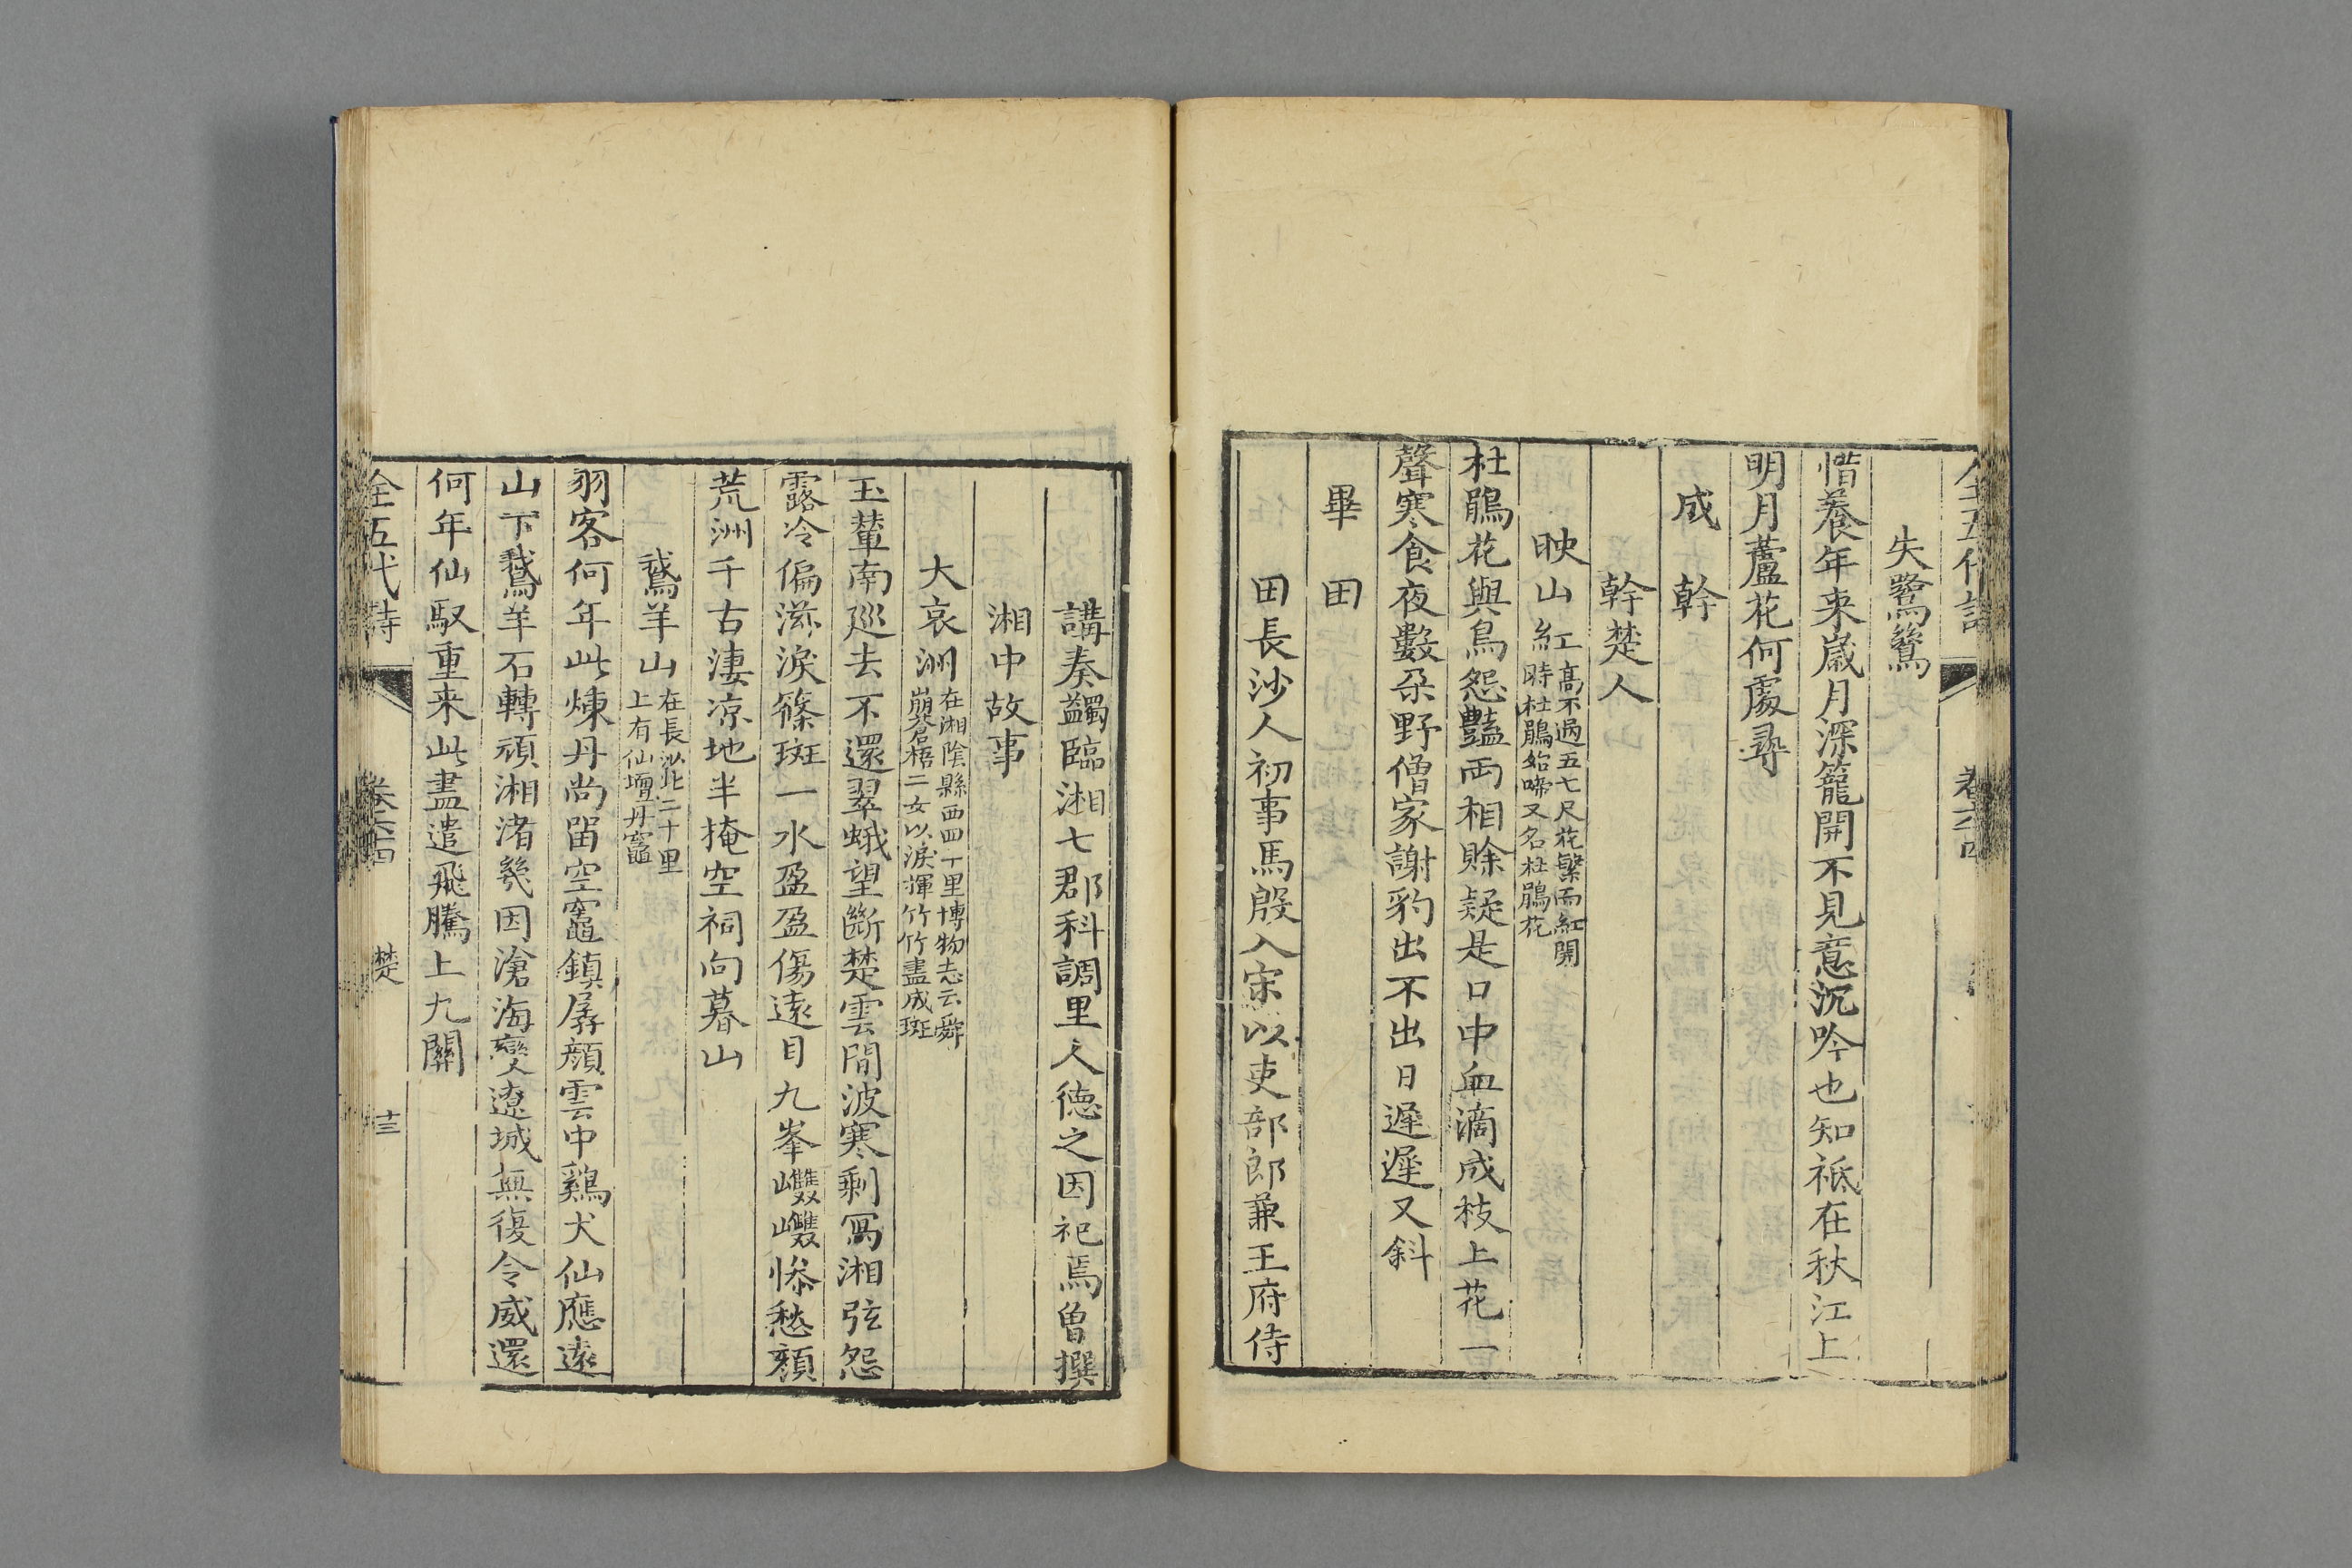 全五代詩 卷六十四
失鷺鷥
惜養年来歲月深籠開不見意沉吟也知祗在秋江上
明月蘆花何處尋
成幹
幹楚人
映山紅 高不過五七尺花繁而紅開
時杜鵑始啼又名杜鵑花
杜鵑花與鳥怨豔两相賒疑是口中血滴成枝上花一
聲寒食夜數朵野僧家謝豹出不出日遲遲又斜
畢田
田長沙人初事馬殷入宋以吏部郎兼王府侍
講奏蠲臨湘七郡科調里人德之因祀焉曾撰
湘中故事
大哀洲 在湘陰縣西四十里博物志云舜
崩蒼梧二女以淚揮竹竹盡成斑
玉輦南廵去不還翠蛾望斷楚雲間波寒剩寫湘弦怨
露冷偏滋淚篠斑一水盈盈傷遠目九峯巉巉慘愁顔
荒洲千古淒凉地半掩空祠向暮山
鵞羊山 在長沙北二十里
上有仙壇丹竈
羽客何年此煉丹尚畱空竈鎮孱顔雲中鷄犬仙應遠
山下鵞羊石轉頑湘渚幾因滄海變遼城無復令威還
何年仙馭重来此盡遣飛騰上九關
全五代詩 卷六十四 楚 十三